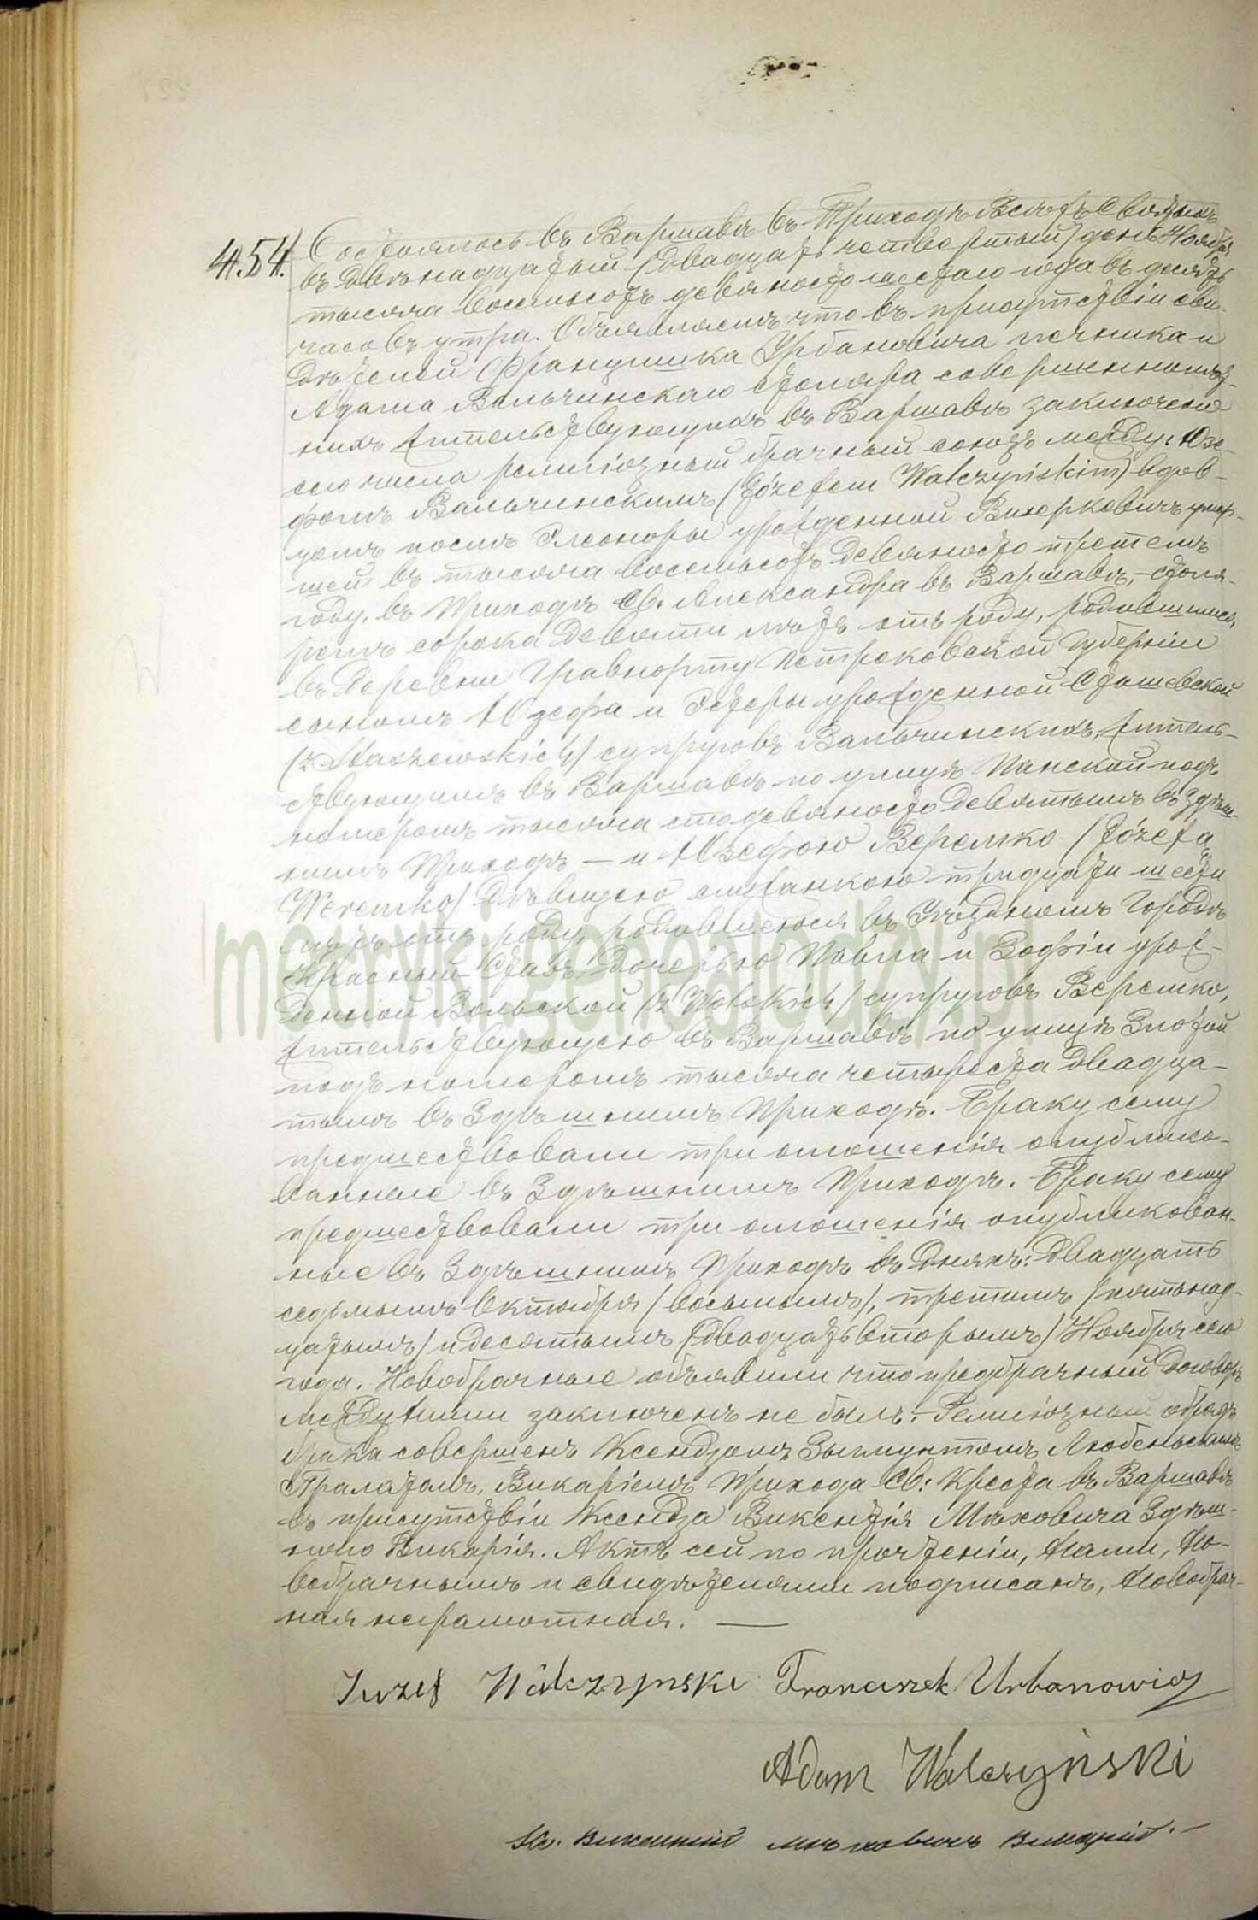 454.
Состоялось въ Варшавѣ въ Приходѣ Всѣхъ Святыхъ
въ двѣнадцатый /двадцать четвертый/ день Ноября
тысяча восемьсотъ девяносто шестаго года въ десять
часовъ утра. Объявляемъ что въ присутствіи сви-
дѣтелей Францишка Урбановича печника и
Адама Вальчинскаго столяра совершеннолѣт-
нихъ жительствующихъ въ Варшавѣ заключенъ
сего числа религіозный брачный союзъ между: Юзе-
фомъ Вальчинскимъ /Józefem Walczyńskim/ вдов-
цомъ послѣ Элеоноры урожденной умер-
шей въ тысяча восемьсотъ девяносто третьемъ
году, въ Приходѣ Св. Александра въ Варшавѣ, – столя-
ромъ сорока девяти лѣтъ отъ роду, родившимся
въ деревни Петроковской Губерніи
сыномъ Юзефа и урожденной Сташевской
(z Staszewskich) супруговъ Вальчинскихъ, житель-
ствующимъ въ Варшавѣ по улицѣ Панской подъ
номеромъ тысяча сто девяносто девятымъ въ здѣш-
нимъ Приходѣ — и Юзефою Веремко /Józefa
Weremko/ дѣвицею тридцати шести
лѣтъ отъ роду, родившеюся въ Уѣздномъ Городѣ
Красный Ставъ дочерью Павла и Зофіи урож-
денной Вольской (z Wolskich) супруговъ Веремко,
жительствующею въ Варшавѣ по улицѣ Злотой
подъ номеромъ тысяча четыреста двадца-
тымъ въ Здѣшнимъ Приходѣ. Браку сему
предшествовали три оглошенія опублико-
ванные въ Здѣшнимъ Приходѣ. Браку сему
предшествовали три оглошенія опубликован-
ные въ Здѣшнимъ Приходѣ въ дняхъ: двадцать
седьмымъ Октября /восьмымъ/, третимъ /пятнад-
цатымъ/ и десятымъ /двадцать вторымъ/ Ноября сего
года. Новобрачные объявили что предбрачный договоръ
между ними заключенъ не былъ. – Религіозный обрядъ
брака совершенъ Ксендзомъ Зыгмунтомъ
Викаріемъ Прихода Св: Креста въ Варшавѣ
въ присутствіи Ксендза Викентія Мѣховича Здѣш-
няго Викарія. Актъ сей по прочтеніи, Нами, Но-
вобрачнымъ и свидѣтелями подписанъ, Новобрач-
ная неграмотная. —
Juzef Walczynski Franciszek Urbanowicz
Adam Walczyński
Кс. Викентій Мѣховичъ Викарій. –
metryki.genealodzy.pl